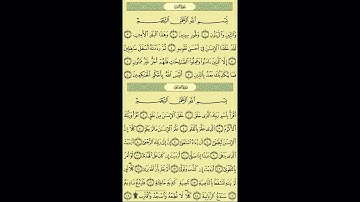 سورة التين
بِسْمِ اللَّهِ الرَّحْمَٰنِ الرَّحِيمِ
وَالتِّينِ وَالزَّيْتُونِ ١ وَطُورِ سِينِينَ ٢ وَهَٰذَا الْبَلَدِ الْأَمِينِ ٣
لَقَدْ خَلَقْنَا الْإِنسَانَ فِي أَحْسَنِ تَقْوِيمٍ ٤ ثُمَّ رَدَدْنَاهُ أَسْفَلَ سَافِلِينَ ٥
إِلَّا الَّذِينَ آمَنُوا وَعَمِلُوا الصَّالِحَاتِ فَلَهُمْ أَجْرٌ غَيْرُ مَمْنُونٍ ٦
فَمَا يُكَذِّبُكَ بَعْدُ بِالدِّينِ ٧ أَلَيْسَ اللَّهُ بِأَحْكَمِ الْحَاكِمِينَ ٨
سورة العلق
بِسْمِ اللَّهِ الرَّحْمَٰنِ الرَّحِيمِ
اقْرَأْ بِاسْمِ رَبِّكَ الَّذِي خَلَقَ ١ خَلَقَ الْإِنسَانَ مِنْ عَلَقٍ ٢ اقْرَأْ وَرَبُّكَ
الْأَكْرَمُ ٣ الَّذِي عَلَّمَ بِالْقَلَمِ ٤ عَلَّمَ الْإِنسَانَ مَا لَمْ يَعْلَمْ ٥ كَلَّا إِنَّ
الْإِنسَانَ لَيَطْغَىٰ ٦ أَن رَّآهُ اسْتَغْنَىٰ ٧ إِنَّ إِلَىٰ رَبِّكَ الرُّجْعَىٰ ٨ أَرَأَيْتَ
الَّذِي يَنْهَىٰ ٩ عَبْدًا إِذَا صَلَّىٰ ١٠ أَرَأَيْتَ إِن كَانَ عَلَى الْهُدَىٰ ١١ أَوْ
أَمَرَ بِالتَّقْوَىٰ ١٢ أَرَأَيْتَ إِن كَذَّبَ وَتَوَلَّىٰ ١٣ أَلَمْ يَعْلَم بِأَنَّ اللَّهَ يَرَىٰ ١٤ كَلَّا
لَئِن لَّمْ يَنتَهِ لَنَسْفَعًا بِالنَّاصِيَةِ ١٥ نَاصِيَةٍ كَاذِبَةٍ خَاطِئَةٍ ١٦ فَلْيَدْعُ نَادِيَهُ ١٧
سَنَدْعُ الزَّبَانِيَةَ ١٨ كَلَّا لَا تُطِعْهُ وَاسْجُدْ وَاقْتَرِب ۩ ١٩